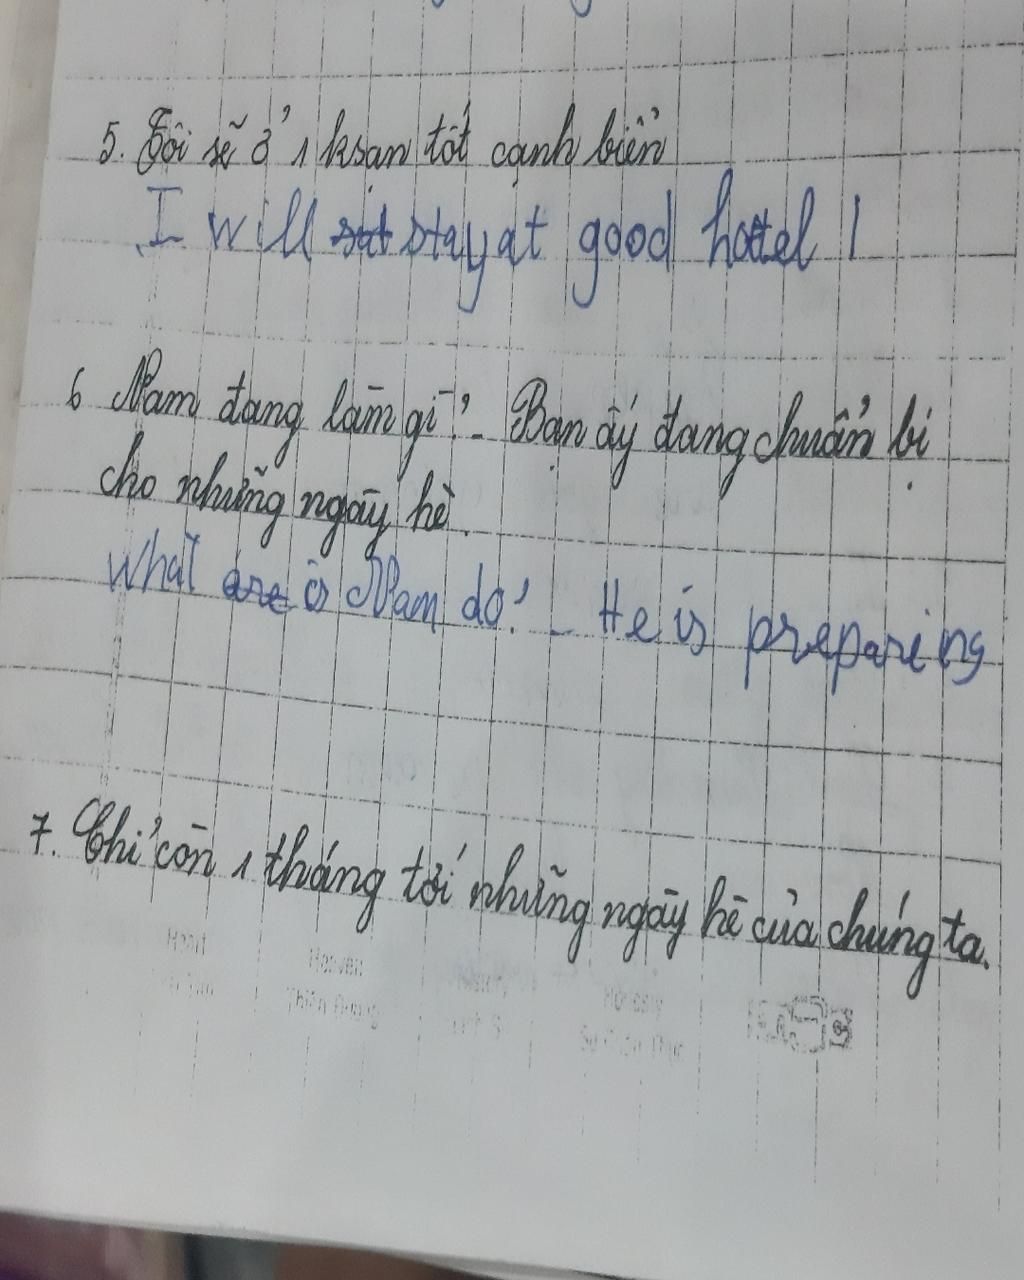 5. Tôi sẽ ở 1 ksạn tốt cạnh biển
I will sit stay at good hottel |
6 Nam đang làm gì? - Bạn ấy đang chuẩn bị
cho những ngày hè.
What are is Nam do? - He is preparing
7. Chỉ còn 1 tháng tới những ngày hè của chúng ta.